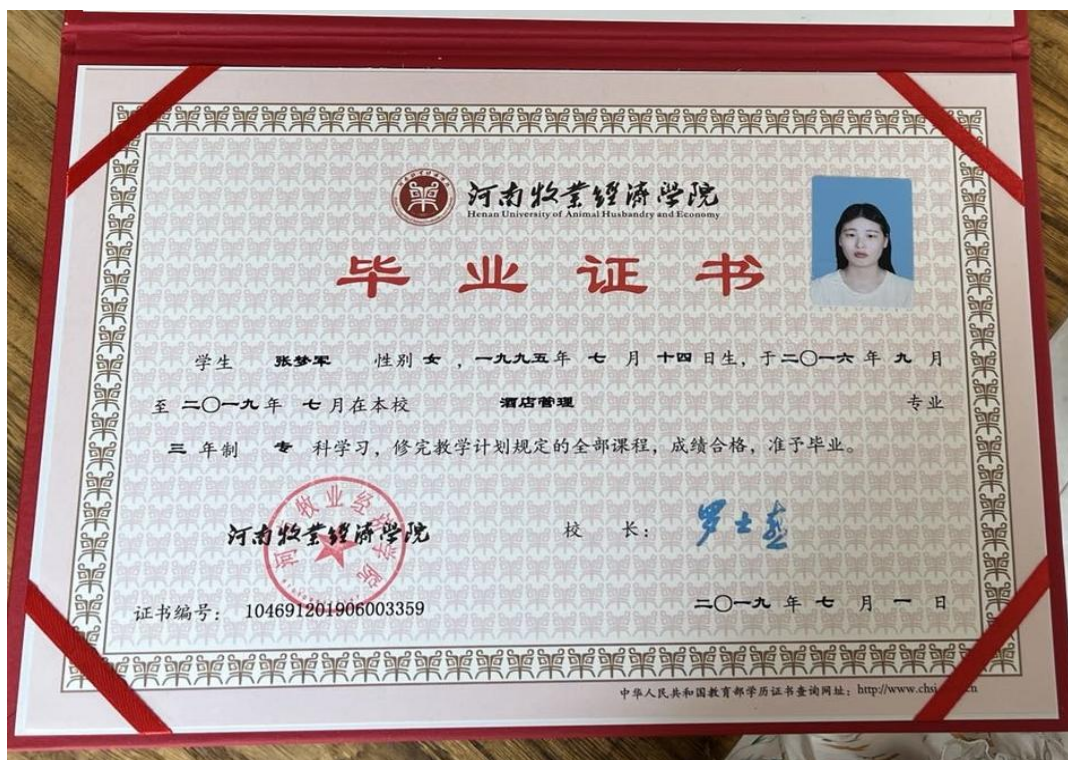 河南牧业经济学院
Henan University of Animal Husbandry and Economy
毕业证书
学生 张梦军 性别 女 ，一九九五年 七 月 十四 日生，于二〇一六 年 九 月
至 二〇一九 年 七 月在本校 酒店管理 专业
三 年制 专 科学习，修完教学计划规定的全部课程，成绩合格，准予毕业。
河南牧业经济学院
河南牧业经济学院
校 长：
罗士喜
证书编号： 104691201906003359
二〇一九 年 七 月 一 日
中华人民共和国教育部学历证书查询网址：http://www.chsi